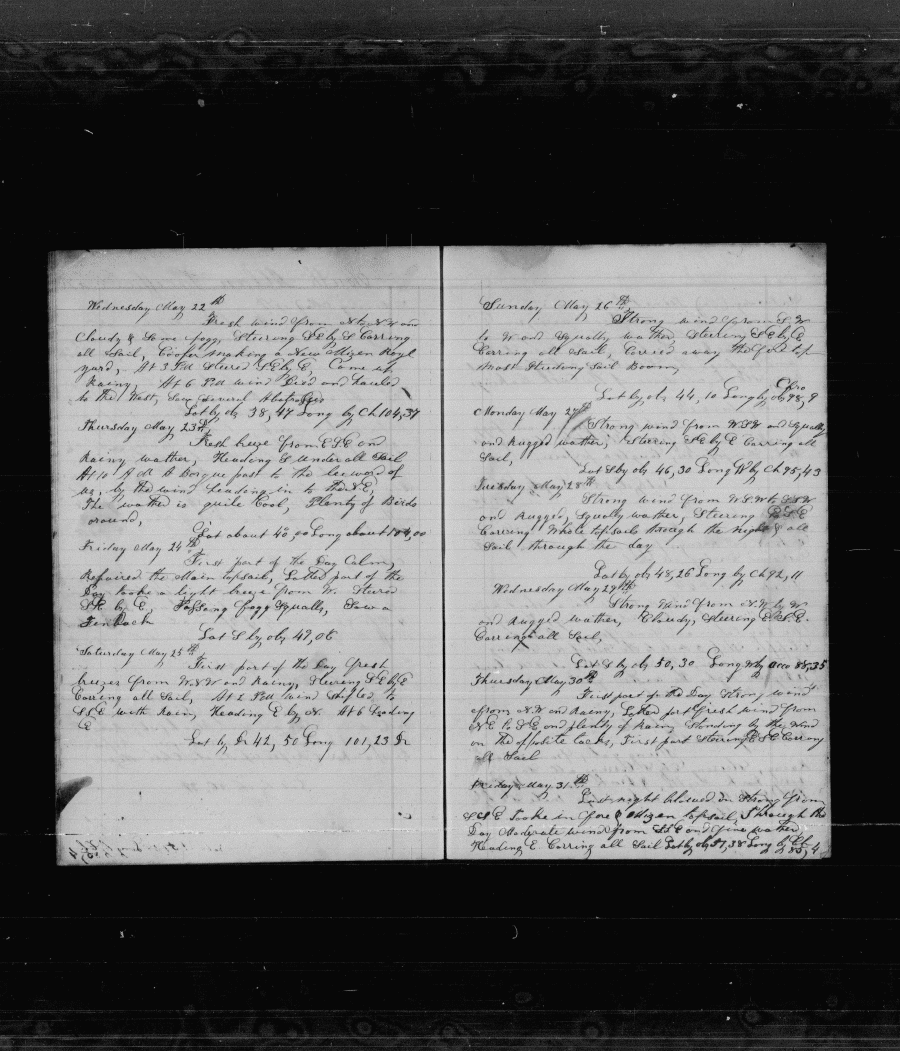 Wednesday May 22th
Fresh wind from N to N W and
Cloudy & Some fogg, Steering S E by S Carring
all Sail, Cooper making a New Mizen Royl
yard, At 3 P M Steered S E by E, Came in
Rainy, At 6 P M wind Died and hauled
to the West, Saw Several Abatrosses
Lat by ob 38,47 Long by Ch 104,37
Thursday May 23th
Fresh breeze from E S E and
Rainy wather, Heading S under all Sail
At 10 A M A Barque past to the leeward of
us, by the wind heading in to the N E,
The wather is quite Cool, Plenty of Birds
around,
Lat about 40,00 Long about 104,00
Friday May 24th
First part of the Day Calm,
Repaired the Main topsail, Latter part of the
Day tooke a light breeze from W. Steered
S E by E, Passang fogg Squalls, Saw a
Finback
Lat S by ob 41,06
Saturday May 25th
First part of the Day fresh
breezes from W N W and Rainy, Steering S E by E
Carring all Sail, At 2 P M wind shifted to
S S E with Rain, Heading E by N. At 6 Heading
E
Lat by Dr 42,50 Long 101,23 Dr
Sunday May 26th
Strong wind from S. W
to W and Squally wather Steering S E by E
Carring all Sail, Carried away the fore top
mast Studing Sail Boom,
Lat by ob 44,10 Long by Chro 98,9
Monday May 27th
Strong wind from W S W and Squally
and Rugged wather, Steering S E by E Carring all
Sail,
Lat S by ob 46,30 Long W by Ch 95,43
Tuesday May 28th
Strong wind from W S W to S S W
and Rugged, Squally wather, Steering E S E
Carring Whole topsails through the Night & all
Sail through the day
Lat by ob 48,26 Long by Ch 92,11
Wednesday May 29th
Strong wind from N. W by W
and Rugged wather, Cloudy, Steering E S. E.
Carring all Sail,
Lat S by ob 50,30 Long W by acco 88,35
Thursday May 30th
First part of the Day Strong wind
from N. W and Rainy, Latter part fresh wind from
N E to S E and plenty of Rain, Standing by the Wind
on the opposite tacks, First part Steering E S E Carrony
all Sail
Friday May 31th
Last night blowed in Strong from
S S E Tooke in fore & Mizen topsail, Through the
Day Moderate wind from S S E and fine wather
Heading E Carring all Sail Lat by ob 51,38 Long by Ch
85,4